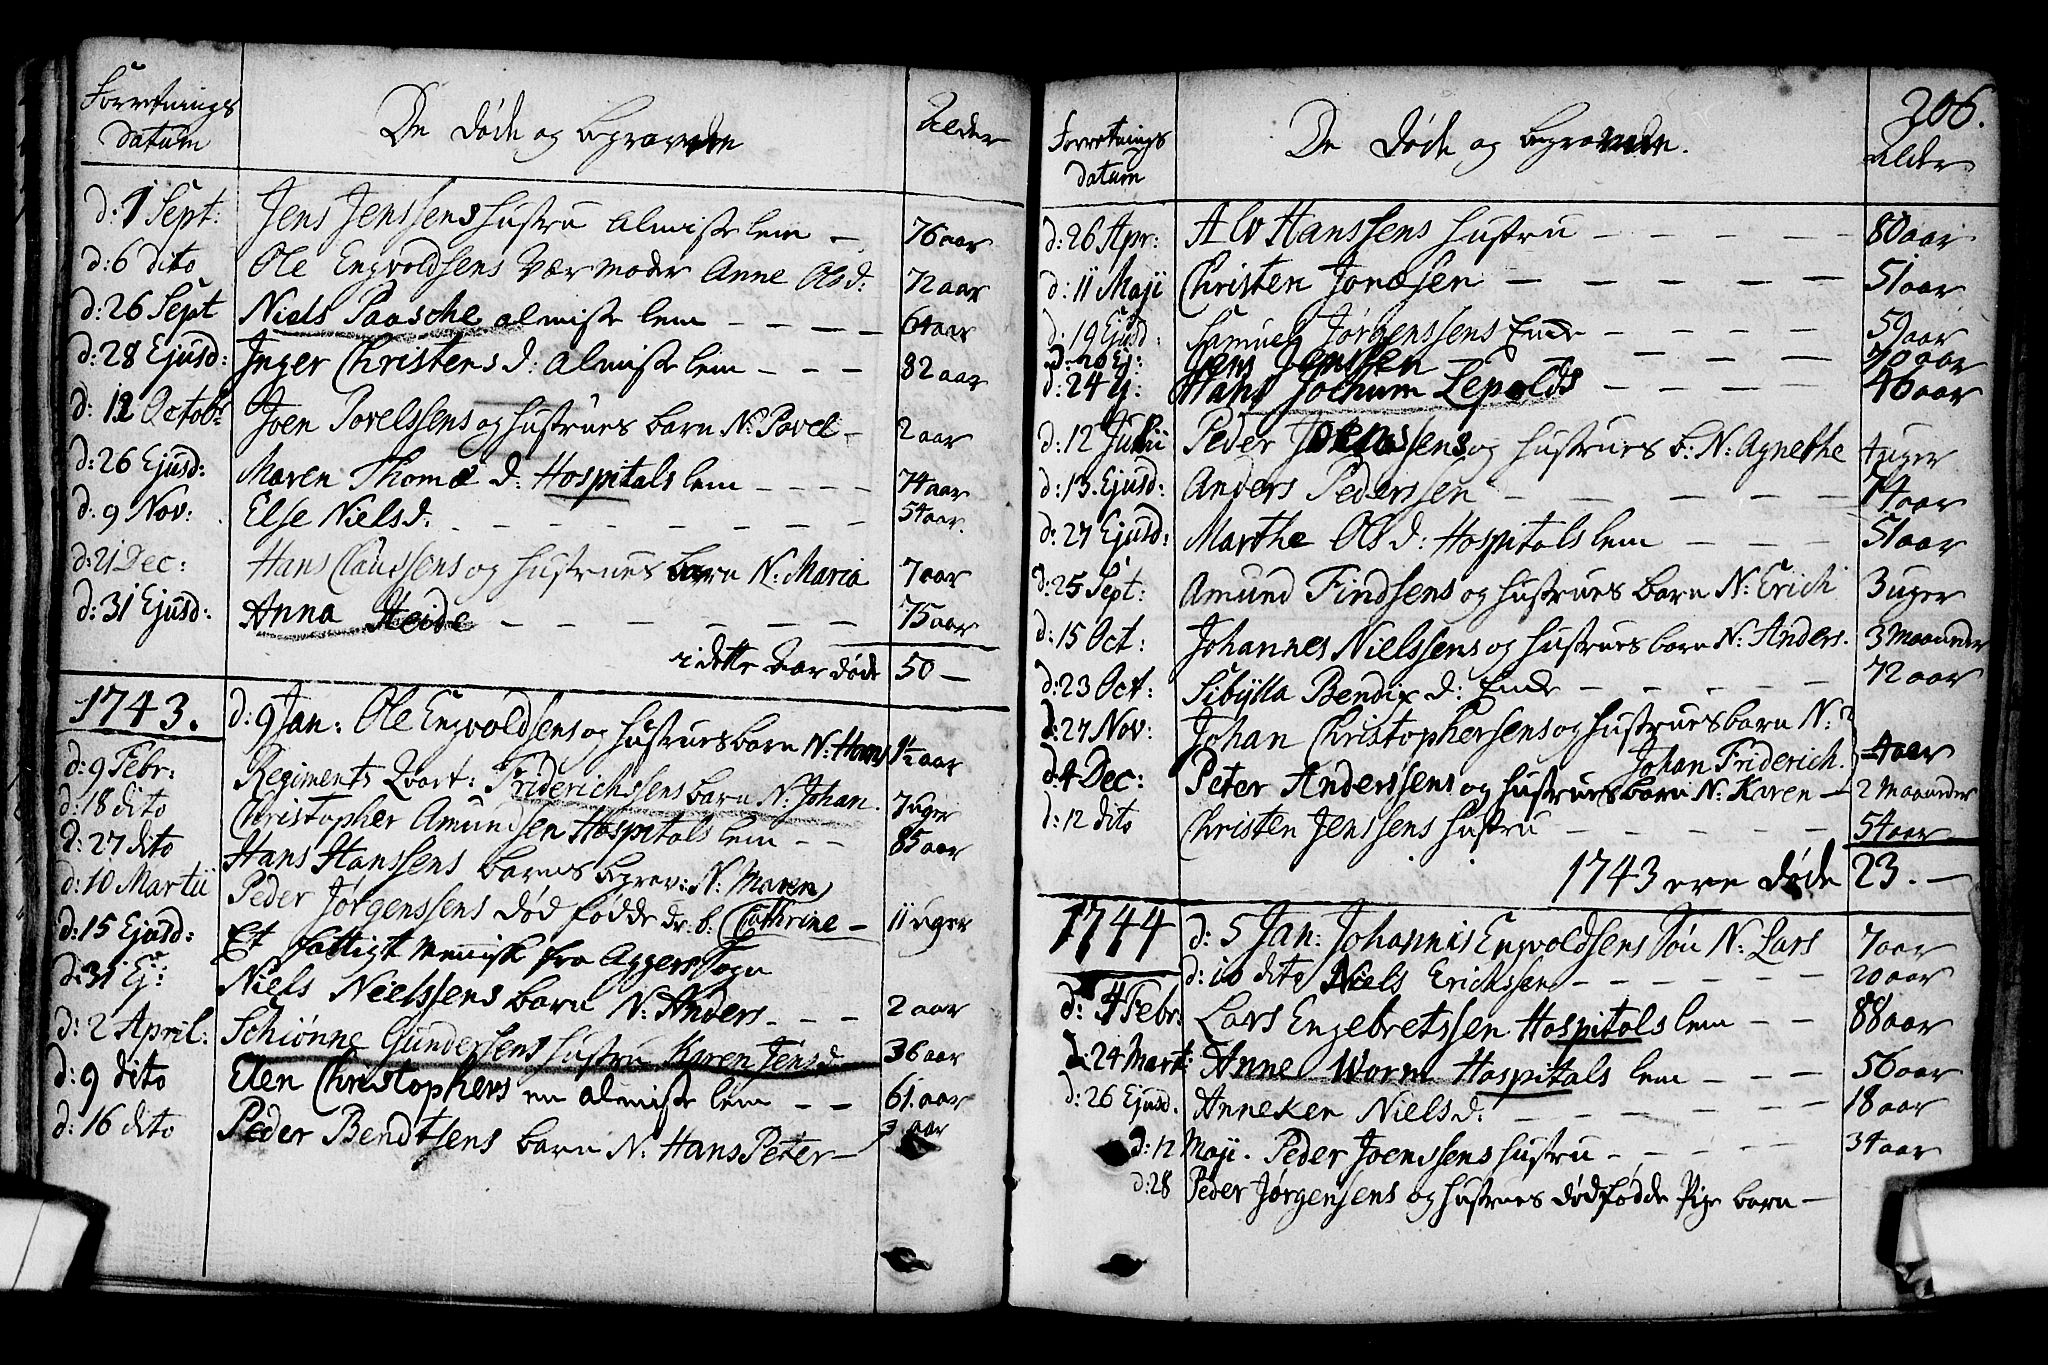 Forretnings datum De døde og begravede Alder
d: 1 Sept: Jens Jenssens hustru almisse lem — 76 aar
d: 6 dito Ole Engvoldsens Vær moder Anne Olsd: 72 aar
d: 26 Sept Niels Paasche almisse lem — — — — 64 aar
d: 28 Ejusd: Inger Christensd: almisse lem — — — 82 aar
d: 12 Octobr Joen Povelssens og hustrues barn N: Povel — 2 aar
d: 26 Ejusd: Maren Thomæ d: Hospitals lem — — — — 74 aar
d: 9 Nov: Else Nielsd. — — — — — — — 54 aar.
d: 21 Dec: Hans Claussens og hustrues barn N: Maria 7 aar
d: 31 Ejusd: Anna Heide — — — — — — 75 aar
i dette Aar døde 50 —
1743. d: 9 Jan: Ole Engvoldsens og hustrues barn N: Hans 1½ aar
d: 9 Febr: Regiments Qvart: Friderichssens barn N: Johan. 7 uger
d: 18 dito Christopher Amundsen Hospitals lem — — 85 aar
d: 27 dito Hans Hanssens barns begrav: N: Maren
d: 10 Martii Peder Jørgenssens død fødde dr. b: Cathrine — 11 uger
d: 15 Ejusd: Et fattigt Mennisk fra Aggers Sogn
d: 31 Ej: Niels Nielssens barn N: Anders. — — — 2 aar
d: 2 April: Schiønne Gundersens hustru Karen Jensd — 36 aar
d: 9 dito Elen Christophers en almisse lem — — 61. aar
d: 16 dito Peder Bendtsens barn N: Hans Peter — 3 aar
206.
Forretnings datum De døde og begravede. Alder
d: 26 Apr: Alv Hanssens hustru — — — — — 80 aar
d: 11 Maji Christen Jonæsen — — — — — 51 aar
d: 19 Ejusd: Samuel Jørgenssens Enke — 59 aar
d: 20 Ej: Jens Jenssen — — — — 70 aar
d: 24 Ej: Hans Jochum Lepolds — — — — 46 aar
d: 12 Julii Peder Joenssens og hustrues b: N: Agnethe 4 uger
d: 13. Ejusd: Anders Pederssen — — — — — 74 aar
d: 27 Ejusd: Marthe Olsd: Hospitals lem — — — 51 aar
d: 25 Sept: Amund Findsens og hustrues barn N: Erich 3 uger
d: 15 Oct: Johannes Nielssens og hustrues barn N: Anders. 3 Maaneder
d: 23 Oct: Sibÿlla Bendix d: Enke — — — — — 72 aar
d: 27 Nov: Johan Christophersens og hustrues barn N:
Johan Friderich. 4 aar
d: 4 Dec: Peter Anderssens og hustrues barn N: Karen — 2 Maaneder
d: 12 dito Christen Jenssens hustru — — — — — 54 aar
1743 ere døde 23. —
1744 d: 5 Jan: Johannis Engvoldsens Søn N: Lars 7 aar
d: 10 dito Niels Erichssen — — — — — 20 aar
d: 4 Febr. Lars Engebretssen Hospitals lem — — 88 aar
d: 24 Mart: Anne Worm Hospitals lem — — — 56 aar
d: 26 Ejusd. Anneken Nielsd. — — — — — — 18 aar
d: 12 Maji. Peder Joenssens hustru — — — — 34 aar
d: 28 Peder Jørgensens og hustrues dødfødde Pige barn —